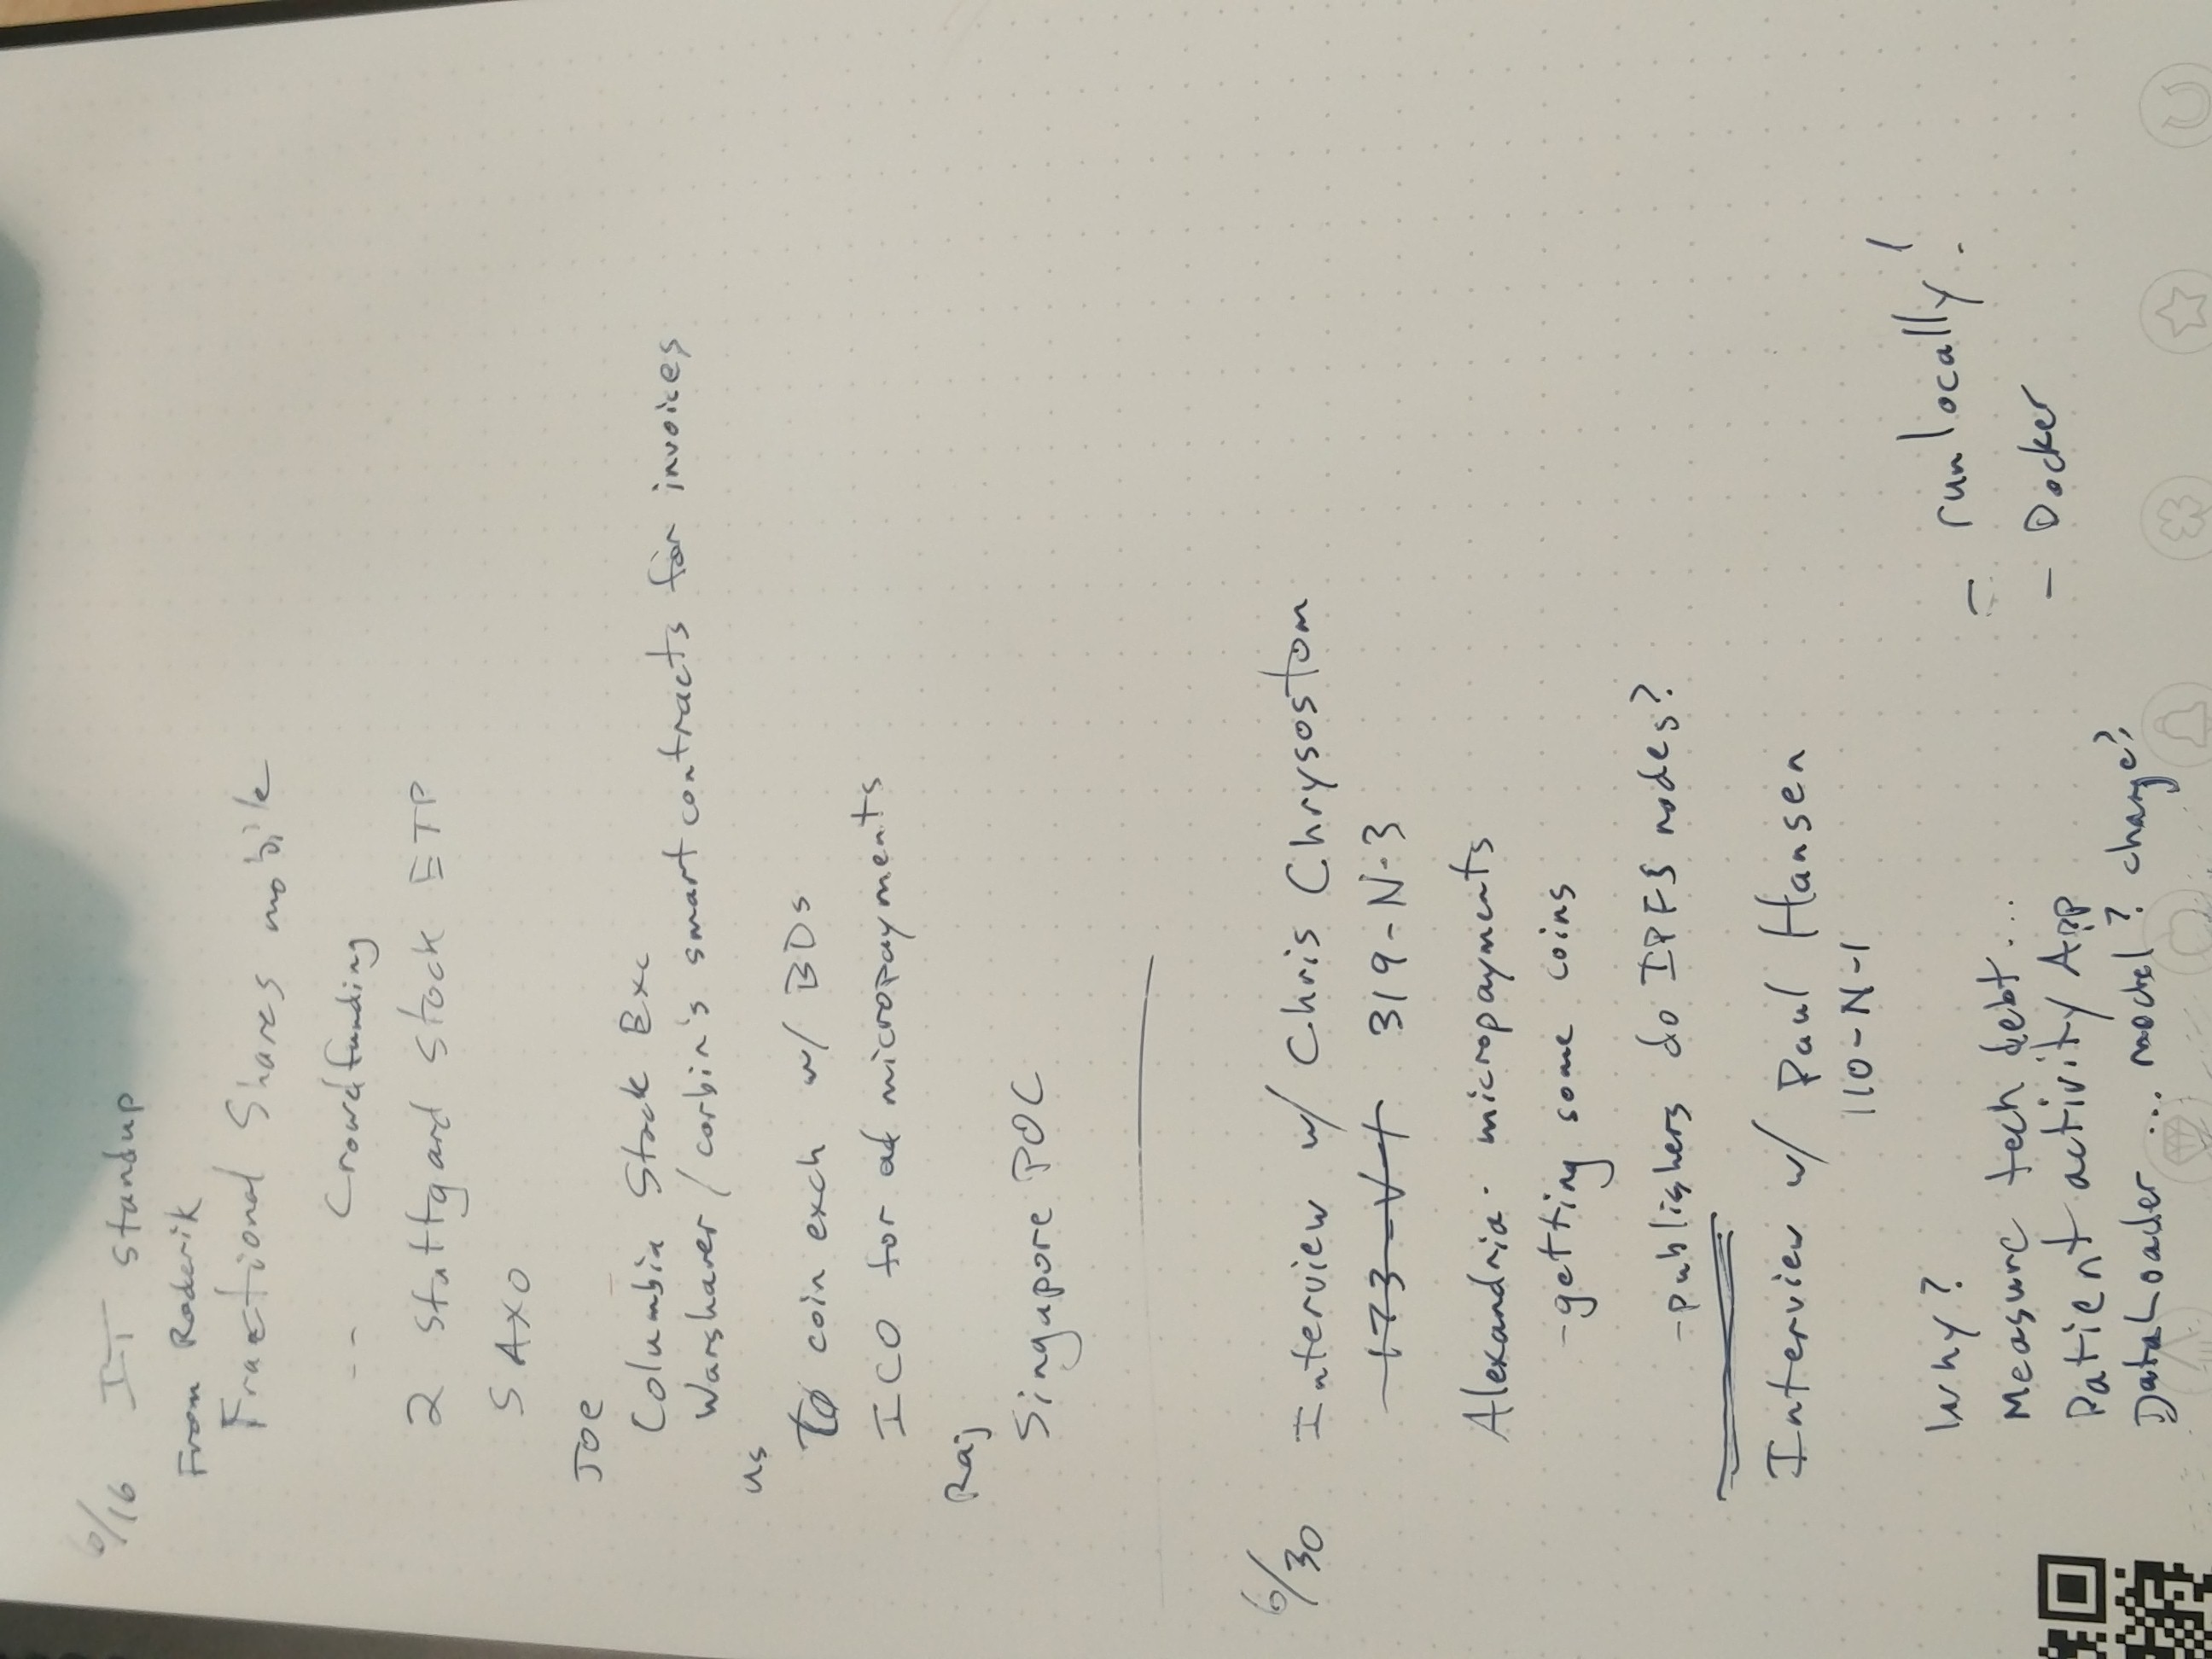 6/16 IT standup
From Roderik
Fractional Shares mobile
-- Crowdfunding
2 stuttgard stock ETP
SAXO
JOE
Columbia Stock Exc
Warshaver / corbin's smart contracts for invoices
us
to coin exch w/ BDs
ICO for ad micropayments
Raj
Singapore POC
6/30 Interview w/ Chris Chrysostom
319-N-3
Alexandria. micropayments
- getting some coins
- publishers do IPFS nodes?
Interview w/ Paul Hansen
110-N-1
Why?
- run locally!
Measure tech debt...
- Docker
Patient activity App
DataLoader ... model? change?